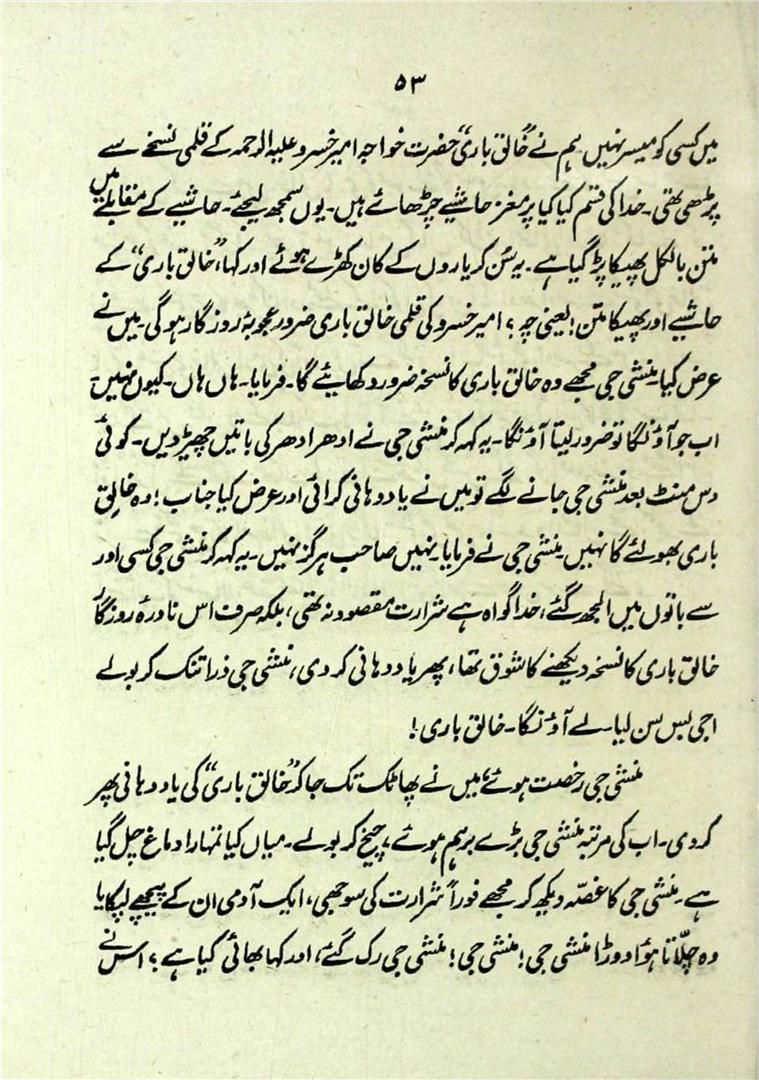 ۵۳
میں کسی کو میسر نہیں ہم نے ”خالق باری“ حضرت خواجہ امیر خسرو علیہ الرحمہ کے قلمی نسخے سے
پڑھی تھی۔ خدا کی قسم کیا کیا پر مغز حاشیے چڑھائے ہیں۔ یوں سمجھ لیجئے۔ حاشیے کے مقابلے میں
متن بالکل پھیکا پڑ گیا ہے۔ یہ سُن کر یاروں کے کان کھڑے ہوئے اور کہا، ”خالق باری“ کے
حاشیے اور پھیکا متن! یعنی چہ؟ امیر خسرو کی قلمی خالق باری ضرور عجوبۂ روزگار ہوگی۔ میں نے
عرض کیا۔ منشی جی مجھے وہ خالق باری کا نسخہ ضرور دکھایئے گا۔ فرمایا۔ ہاں ہاں۔ کیوں نہیں۔
اب جو آؤنگا تو ضرور لیتا آؤنگا۔ یہ کہہ کر منشی جی نے ادھر ادھر کی باتیں چھیڑ دیں۔ کوئی
دس منٹ بعد منشی جی جانے لگے تو میں نے یاد دہانی کرائی اور عرض کیا جناب! وہ خالِق
باری بھولئے گا نہیں۔ منشی جی نے فرمایا۔ نہیں صاحب ہرگز نہیں۔ یہ کہہ کر منشی جی کسی اور
سے باتوں میں الجھ گئے، خدا گواہ ہے شرارت مقصود نہ تھی، بلکہ صرف اس نادرۂ روزگار
خالق باری کا نسخہ دیکھنے کا شوق تھا، پھر یاد دہانی کر دی، منشی جی ذرا تنک کر بولے
اجی بس سن لیا۔ لے آؤنگا۔ خالق باری!
منشی جی رخصت ہوئے، میں نے پھاٹک تک جا کر ”خالق باری“ کی یاد دہانی پھر
کر دی۔ اب کی مرتبہ منشی جی بڑے برہم ہوئے، چیخ کر بولے۔ میاں کیا تمہارا دماغ چل گیا
ہے۔ منشی جی کا غصّہ دیکھ کر مجھے فوراً شرارت کی سوجھی، ایک آدمی ان کے پیچھے لپکایا
وہ چلّاتا ہوٗا دوڑا منشی جی! منشی جی! منشی جی رک گئے، اور کہا بھائی کیا ہے؟ اس نے